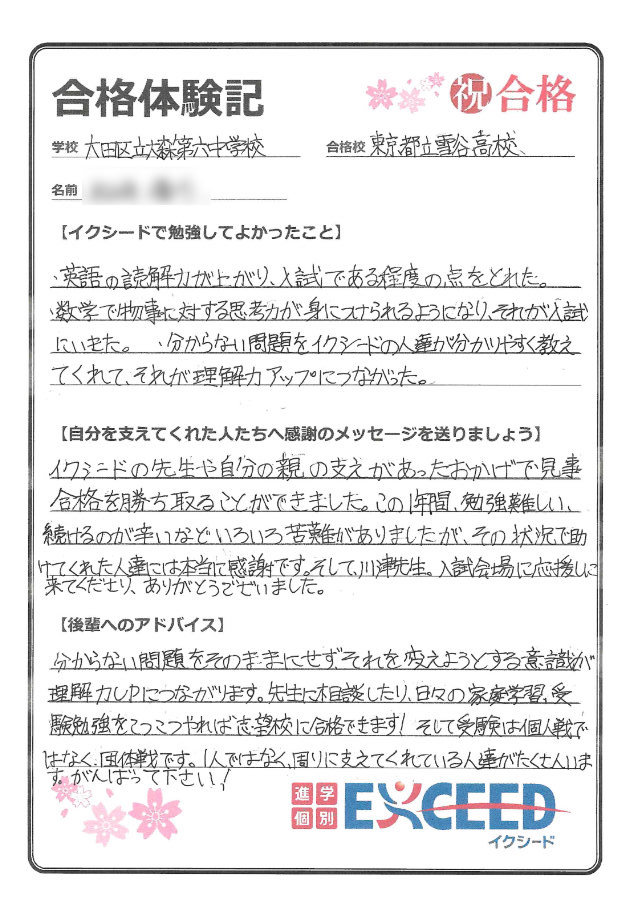 合格体験記
祝 合格
学校 大田区立大森第六中学校
合格校 東京都立雪谷高校、
名前
【イクシードで勉強してよかったこと】
・英語の読解力が上がり、入試である程度の点をとれた。
・数学で物事に対する思考力が身につけられるようになり、それが入試
にいきた。 ・分からない問題をイクシードの人達が分かりやすく教え
てくれて、それが理解力アップにつながった。
【自分を支えてくれた人たちへ感謝のメッセージを送りましょう】
イクシードの先生や自分の親の支えがあったおかげで見事
合格を勝ち取ることができました。この1年間、勉強難しい、
続けるのが辛いなどいろいろ苦難がありましたが、その状況で助
けてくれた人達には本当に感謝です。そして、川津先生。入試会場に応援しに
来てくださり、ありがとうございました。
【後輩へのアドバイス】
分からない問題をそのままにせずそれを変えようとする意識が
理解力UPにつながります。先生に相談したり、日々の家庭学習、受
験勉強をこつこつやれば志望校に合格できます! そして受験は個人戦で
はなく、団体戦です。1人ではなく、周りに支えてくれている人達がたくさんいま
す。がんばって下さい!
進学
個別
EXCEED
イクシード